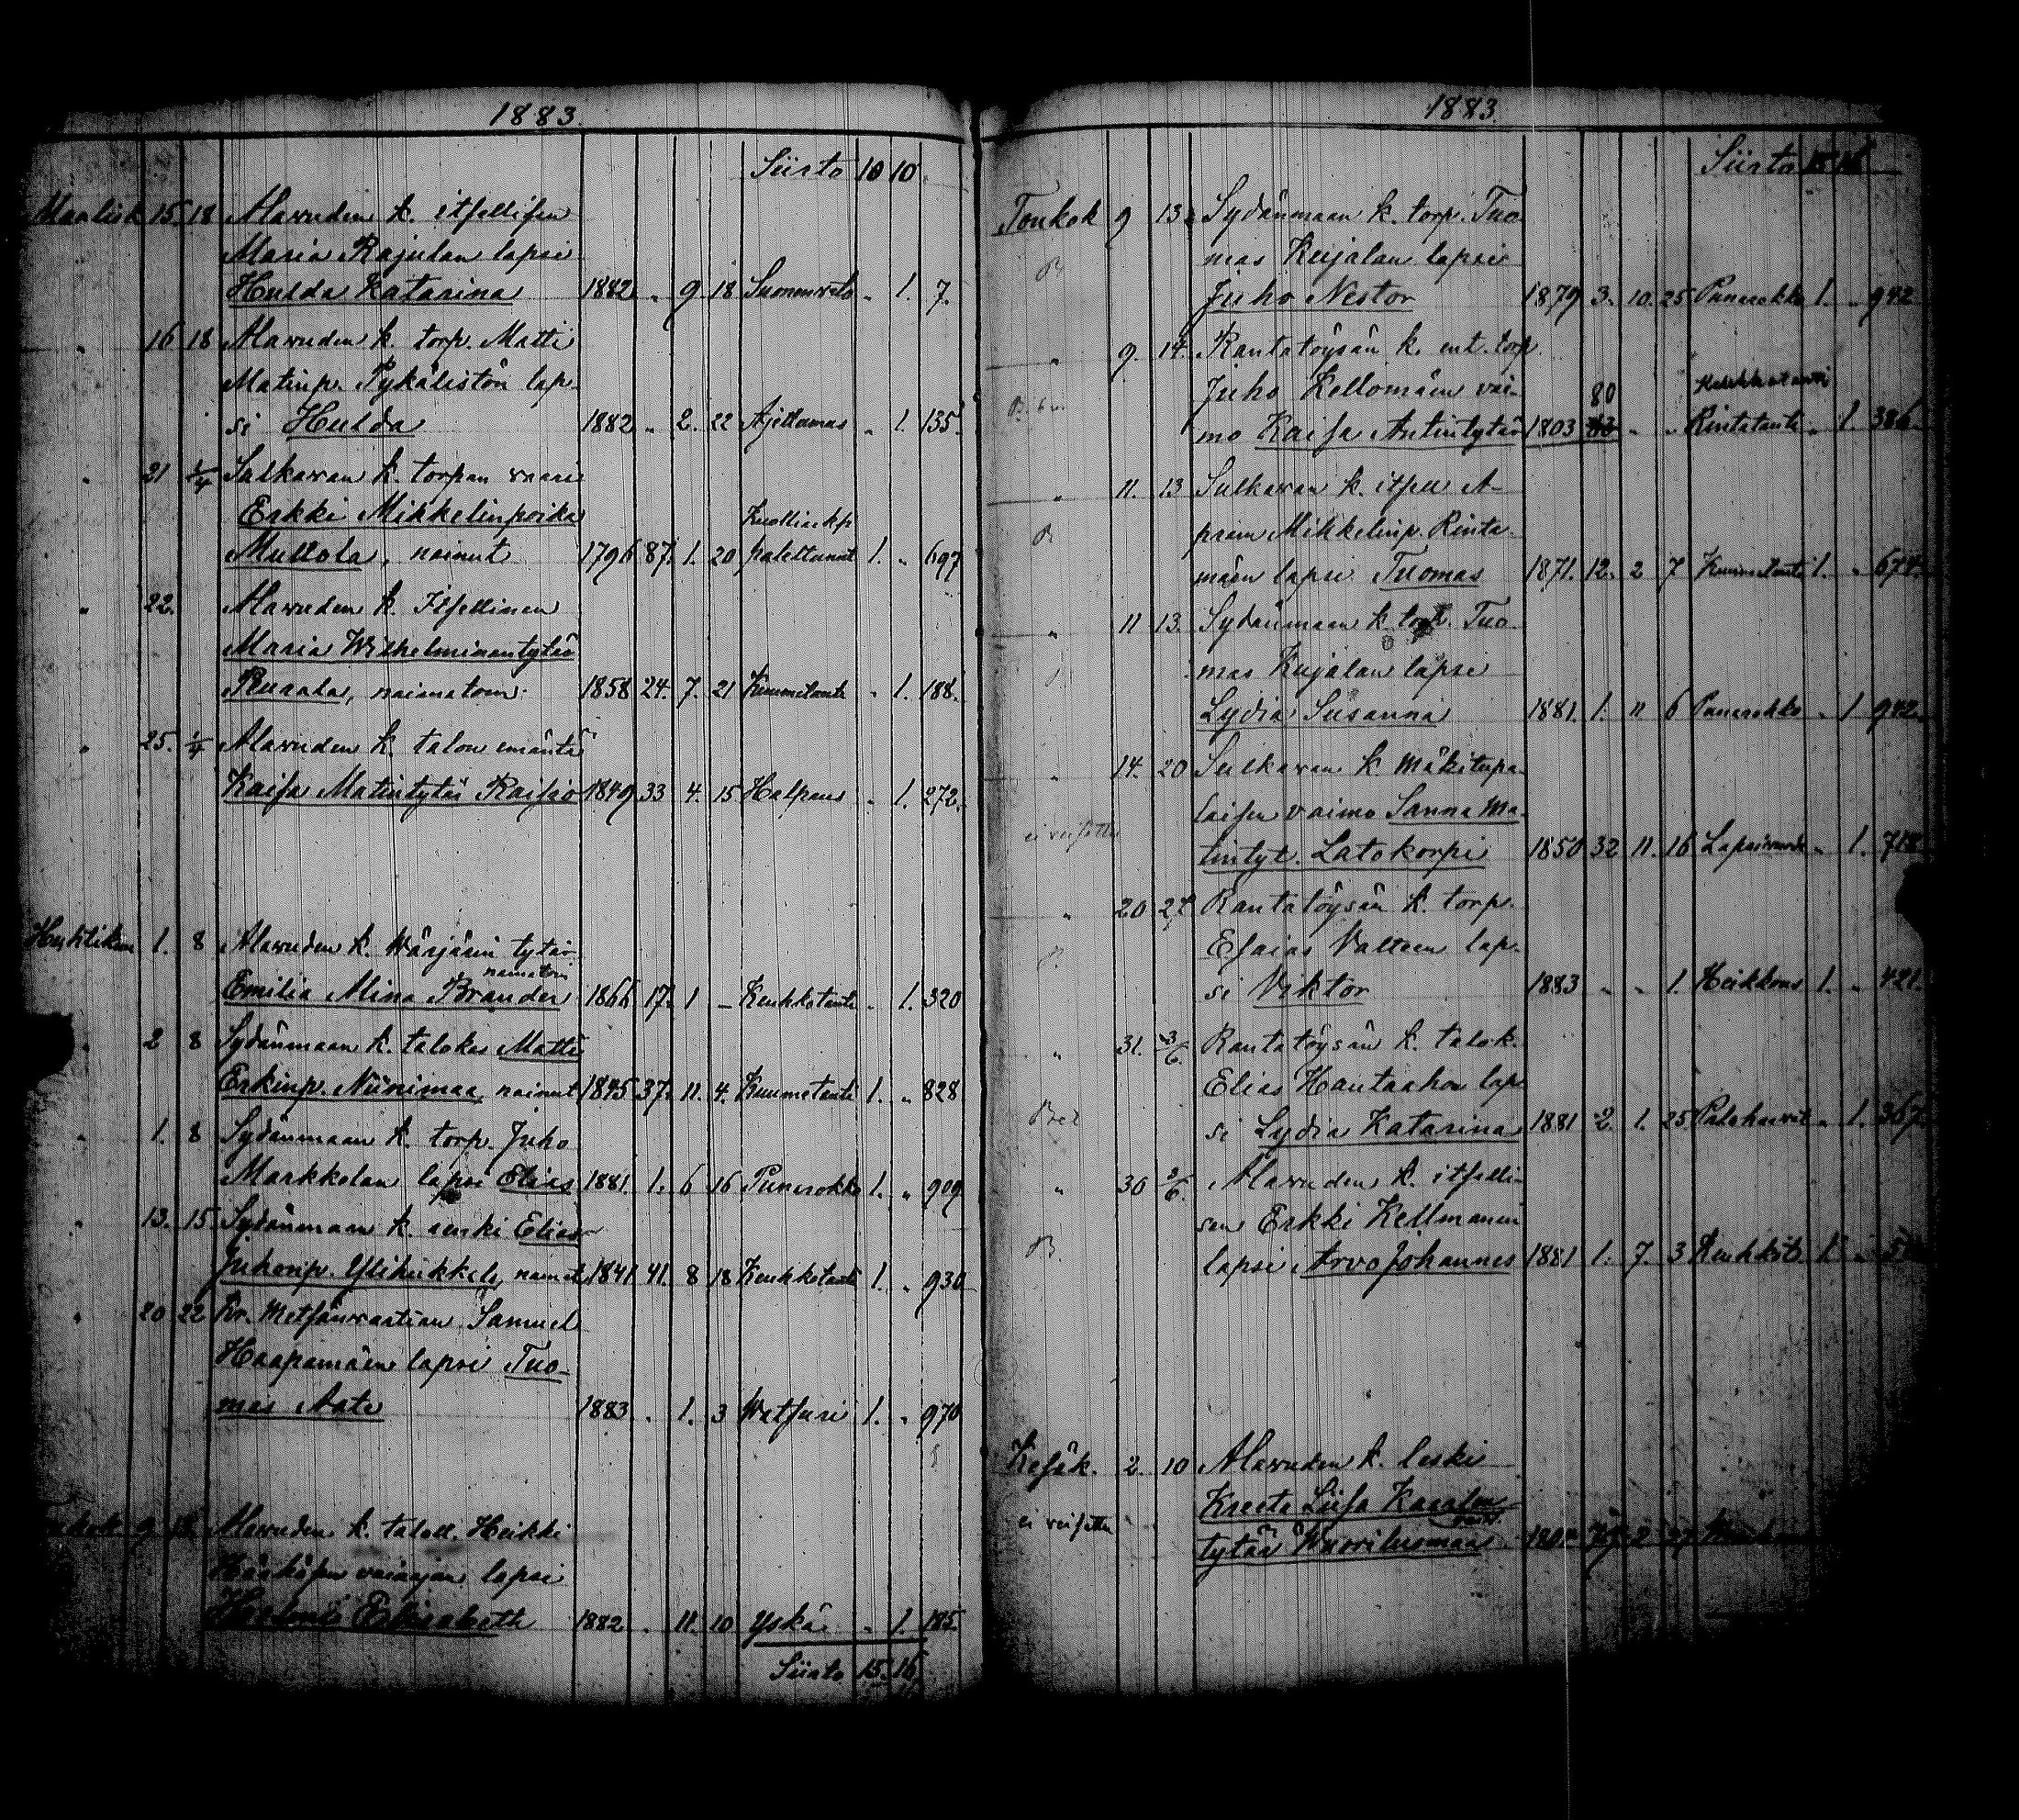 1883.
Siirto 10 10
Maalisk 15. 18 Alavuden k. itsellisen
Maria Rajulan lapsi
Hulda Katarina 1882 „ 9. 18 Suonenveto „ 1. 7.
„ 16 18 Alavuden k. torp. Matti
Matinp. Pykälistön lap-
si Hulda 1882 „ 2. 22 Ajettumas „ 1. 135.
„ 21 1/4 Sulkavan k. torpan vaari
Erkki Mikkelinpoika
Mullola, nainut 1796 87. 1. 20 1. „ 697
„ 22. Alavuden k. Itsellinen
Maria Wilhelmiinantytär
naimatoin. 1858 24. 7. 21 Kuumetauti „ 1. 188.
„ 25. 1/4 Alavuden k. talon emäntä
Kaisa Matintytär Raisio 1849 33 4. 15 Halpaus „ 1. 272.
Huhtikuu 1. 8 Alavuden k. Wärjärin tytär
naimatoin
Emilia Mina Brander 1866 17. 1 – Keuhkotauti „ 1. 320
„ 2 8 Sydänmaan k. talokas Matti
Erkinp. Niinimaa, nainut 1845 37. 11. 4. Kuumetauti 1. „ 828
„ 1. 8 Sydänmaan k. torp. Juho
Markkolan lapsi Elias 1881. 1. 6 16 Punarokko 1. „ 909
„ 13. 15 Sydänmaan k. renki Elias
Juhonp. Ylihukkala, nainut 1841. 41. 8 18 Keuhkotauti 1. „ 930
„ 20 22 Kr. Metsänvartian Samuel
Haapamäen lapsi Tuo-
mas Aate 1883 „ 1. 3 Watsuri 1. „ 970
9 13 Alavuden k. taloll. Heikki
lapsi
Elisabeth 1882 „ 11. 10 Yskä „ 1. 185.
Siirto 15. 16
1883.
Siirto 15 16
Toukok 9 13. Sydänmaan k. torp. Tuo-
mas Kujalan lapsi
Juho Nestor 1879 3. 10. 25 Punarokko 1. „ 942
„ 9. 14. Rantatöysän k. ent. torp
Juho Kellomäen vai- 80
mo Kaisa Antintytär 1803 „ „ Rintatauti „ 1. 386
„ 11. 13 Sulkavan k. itsell A-
pram Mikkelinp. Rinta-
mäen lapsi Tuomas 1871. 12. 2 7 Kuumetauti 1. „ 674.
„ 11 13. Sydänmaan k. torp. Tuo-
mas Kujalan lapsi
Lydia Susanna 1881. 1. 11 6 Punarokko „ 1 942.
„ 14. 20 Sulkavan k. Mäkitupa-
laisen vaimo Sanna Ma-
ei veisattu
tintyt. Latokorpi 1850 32 11. 16 Lapsivuode „ 1. 718
„ 20 27. Rantatöysän k. torp.
Esaias Valteen lap-
si Viktor 1883 „ „ 1. Heikkous 1. „ 421.
„ 31. 3/6. Rantatöysän k. talok.
Elias Hautaahon lap
si Lydia Katarina 1881 2. 1. 25 „ 1. 367
„ 30 3/6. Alavuden k. itselli-
sen Erkki Kellmanin
lapsi Arvo Johannes 1881 1. 7. 3 Keuhkot. 1.
Kesäk. 2. 10 Alavuden k. leski
Kreeta Liisa Kaarlen
ei veisattu
tytär Wuorilusmaa